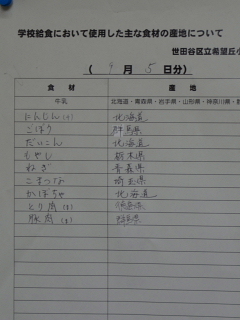 学校給食において使用した主な食材の産地について
世田谷区立希望丘小
( 9 月 5 日分)
食材 産地
牛乳 北海道・青森県・岩手県・山形県・神奈川県・
にんじん 北海道
ごぼう 群馬県
だいこん 北海道
もやし 栃木県
ねぎ 青森県
こまつな 埼玉県
かぼちゃ 北海道
とり肉
豚肉